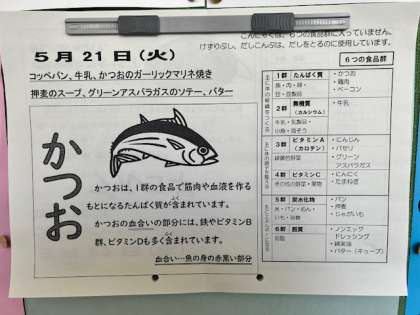 こんにゃくは、6つの食品群に入っていません。
けずりぶし、だしこんぶは、だしをとるのに使用しています。
5月21日(火)
コッペパン、牛乳、かつおのガーリックマリネ焼き
押麦のスープ、グリーンアスパラガスのソテー、バター
かつお
かつおは、1群の食品で筋肉や血液を作る
もとになるたんぱく質が含まれています。
かつおの血合いの部分には、鉄やビタミンB
群、ビタミンDも多く含まれています。
血合い…魚の身の赤黒い部分
6つの食品群
1群 たんぱく質
魚・肉・卵・
豆・豆製品
・かつお
・鶏肉
・ベーコン
2群 無機質
(カルシウム)
牛乳・乳製品・
小魚・海そう
・牛乳
3群 ビタミンA
(カロテン)
緑黄色野菜
・にんじん
・パセリ
・グリーン
アスパラガス
4群 ビタミンC
その他の野菜・果物
・にんにく
・たまねぎ
5群 炭水化物
米・パン・めん・
いも・砂糖
・パン
・押麦
・じゃがいも
6群 脂質
油脂
・ノンエッグ
ドレッシング
・綿実油
・バター(キューブ)